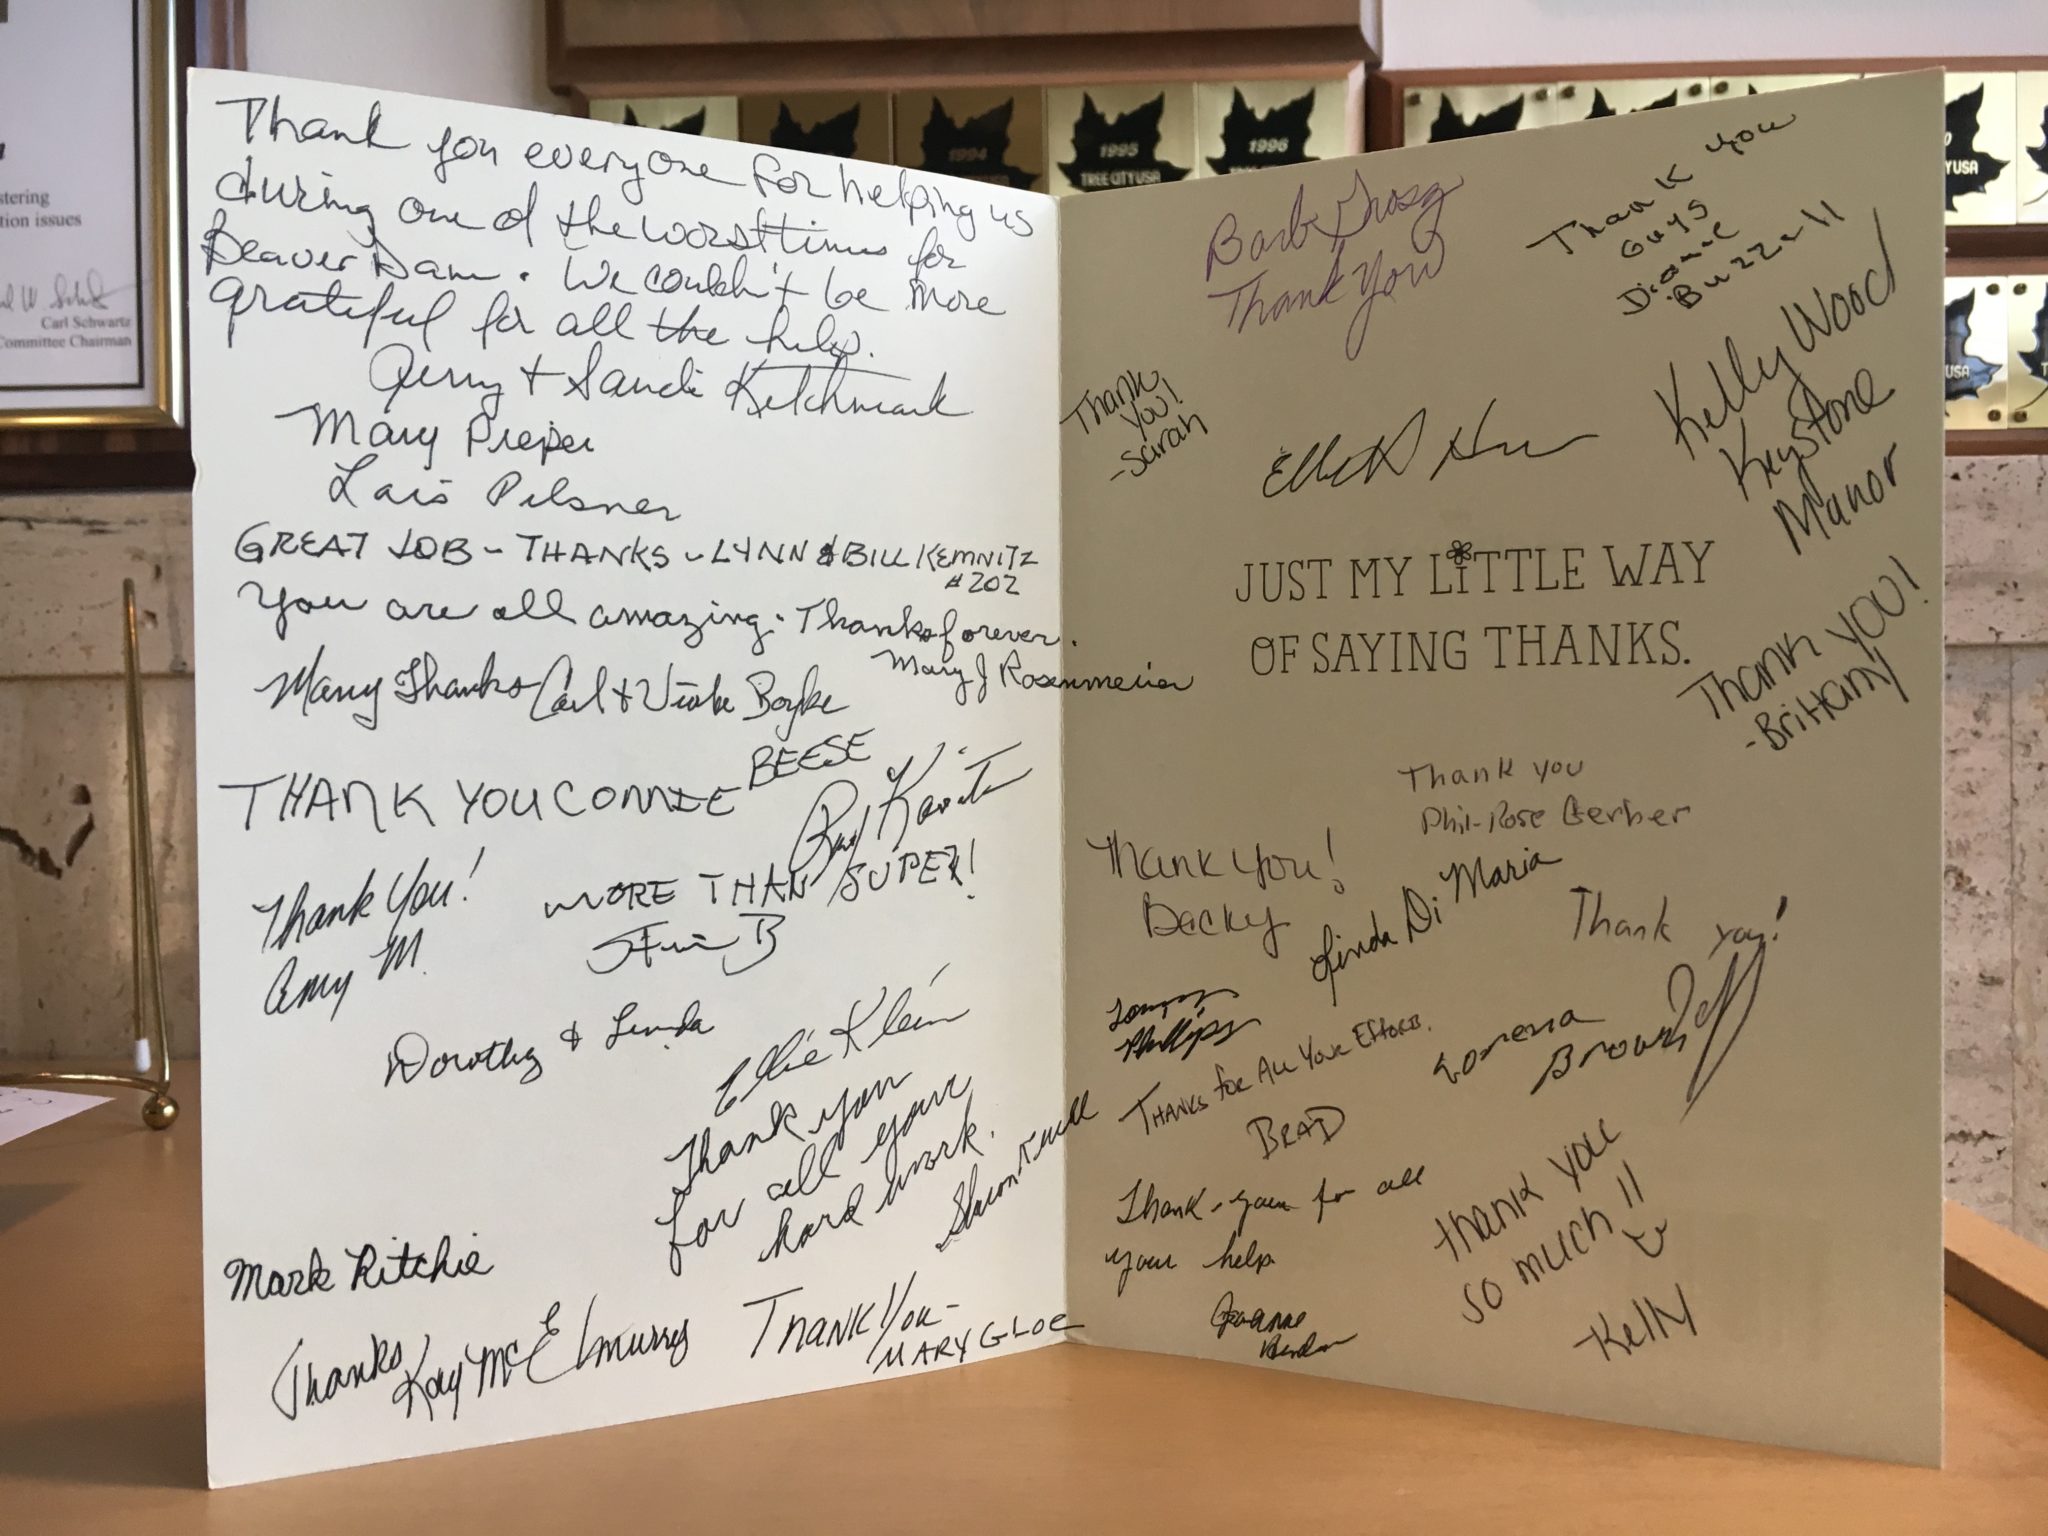 stering
tion issues
Carl Schwartz
Committee Chairman
1994
1995
TREE CITY USA
1996
TREE CITY USA
YUSA
USA
Thank you everyone for helping us
during one of the worst times for
Beaver Dam. We couldn't be more
grateful for all the help.
Jerry + Sandi Ketchmark
Mary Preper
Lois Pilsner
GREAT JOB - THANKS - LYNN & BILL KEMNITZ
#202
You are all amazing. Thanks forever.
Mary J Rosenmeier
Many Thanks Carl + Boyke
THANK YOU CONNIE BEESE
Thank You!
Amy M.
MORE THAN SUPER!
B
Dorothy & Linda
Ellie Klein
Thank you
for all your
hard work.
Sharon
Mark Ritchie
Thanks
Kay McElmurry
THANK YOU -
MARY GLOE
Barb Grosz
Thank You
Thank you
Guys
Dianne
Buzzell
Thank
you!
-Sarah
Kelly Wood
Keystone
Manor
JUST MY LITTLE WAY
OF SAYING THANKS.
Thank you!
-Brittany
Thank you
Phil-Rose Gerber
Thank you!
Becky
Linda Di Maria
Thank you!
Phillips
Lorena
Brown
THANKS FOR ALL YOUR EFFORTS.
BRAD
Thank-you for all
your help
Joanne
Thank you
so much!!
Kelly